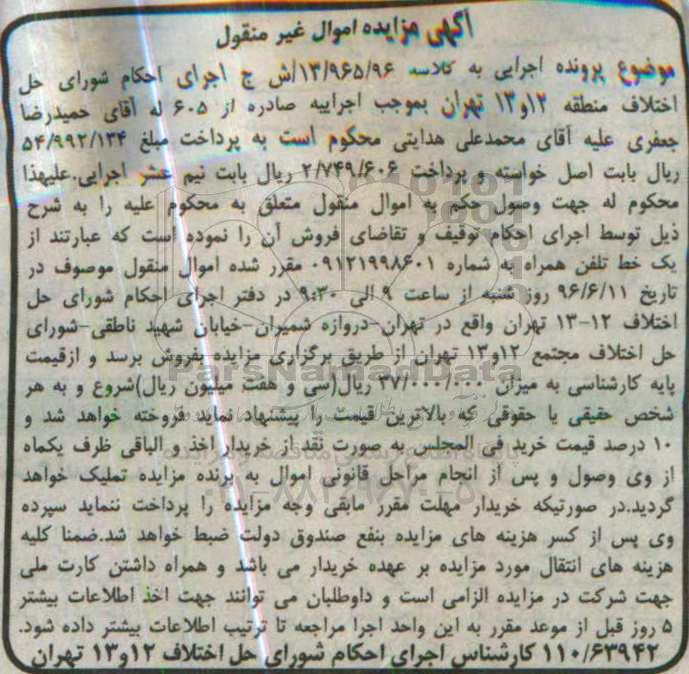 آگهی مزایده اموال غیر منقول
موضوع پرونده اجرایی به کلاسه ۱۳/۹۶۵/۹۶/ش ج اجرای احکام شورای حل
اختلاف منطقه ۱۲و۱۳ تهران بموجب اجراییه صادره از ۶۰۵ له آقای حمیدرضا
جعفری علیه آقای محمدعلی هدایتی محکوم است به پرداخت مبلغ ۵۴/۹۹۲/۱۳۴
ریال بابت اصل خواسته و پرداخت ۲/۷۴۹/۶۰۶ ریال بابت نیم عشر اجرایی.علیهذا
محکوم له جهت وصول حکم به اموال منقول متعلق به محکوم علیه را به شرح
ذیل توسط اجرای احکام توقیف و تقاضای فروش آن را نموده است که عبارتند از
یک خط تلفن همراه به شماره ۰۹۱۲۱۹۹۸۶۰۱ مقرر شده اموال منقول موصوف در
تاریخ ۹۶/۶/۱۱ روز شنبه از ساعت ۹ الی ۹:۳۰ در دفتر اجرای احکام شورای حل
اختلاف ۱۲-۱۳ تهران واقع در تهران-دروازه شمیران-خیابان شهید ناطقی-شورای
حل اختلاف مجتمع ۱۲و۱۳ تهران از طریق برگزاری مزایده بفروش برسد و ازقیمت
پایه کارشناسی به میزان ۳۷/۰۰۰/۰۰۰ ریال(سی و هفت میلیون ریال)شروع و به هر
شخص حقیقی یا حقوقی که بالاترین قیمت را پیشنهاد نماید فروخته خواهد شد و
۱۰ درصد قیمت خرید فی المجلس به صورت نقد از خریدار اخذ و الباقی ظرف یکماه
از وی وصول و پس از انجام مراحل قانونی اموال به برنده مزایده تملیک خواهد
گردید.در صورتیکه خریدار مهلت مقرر مابقی وجه مزایده را پرداخت ننماید سپرده
وی پس از کسر هزینه های مزایده بنفع صندوق دولت ضبط خواهد شد.ضمنا کلیه
هزینه های انتقال مورد مزایده بر عهده خریدار می باشد و همراه داشتن کارت ملی
جهت شرکت در مزایده الزامی است و داوطلبان می توانند جهت اخذ اطلاعات بیشتر
۵ روز قبل از موعد مقرر به این واحد اجرا مراجعه تا ترتیب اطلاعات بیشتر داده شود.
۱۱۰/۶۳۹۴۲ کارشناس اجرای احکام شورای حل اختلاف ۱۲و۱۳ تهران
ParsNamadData